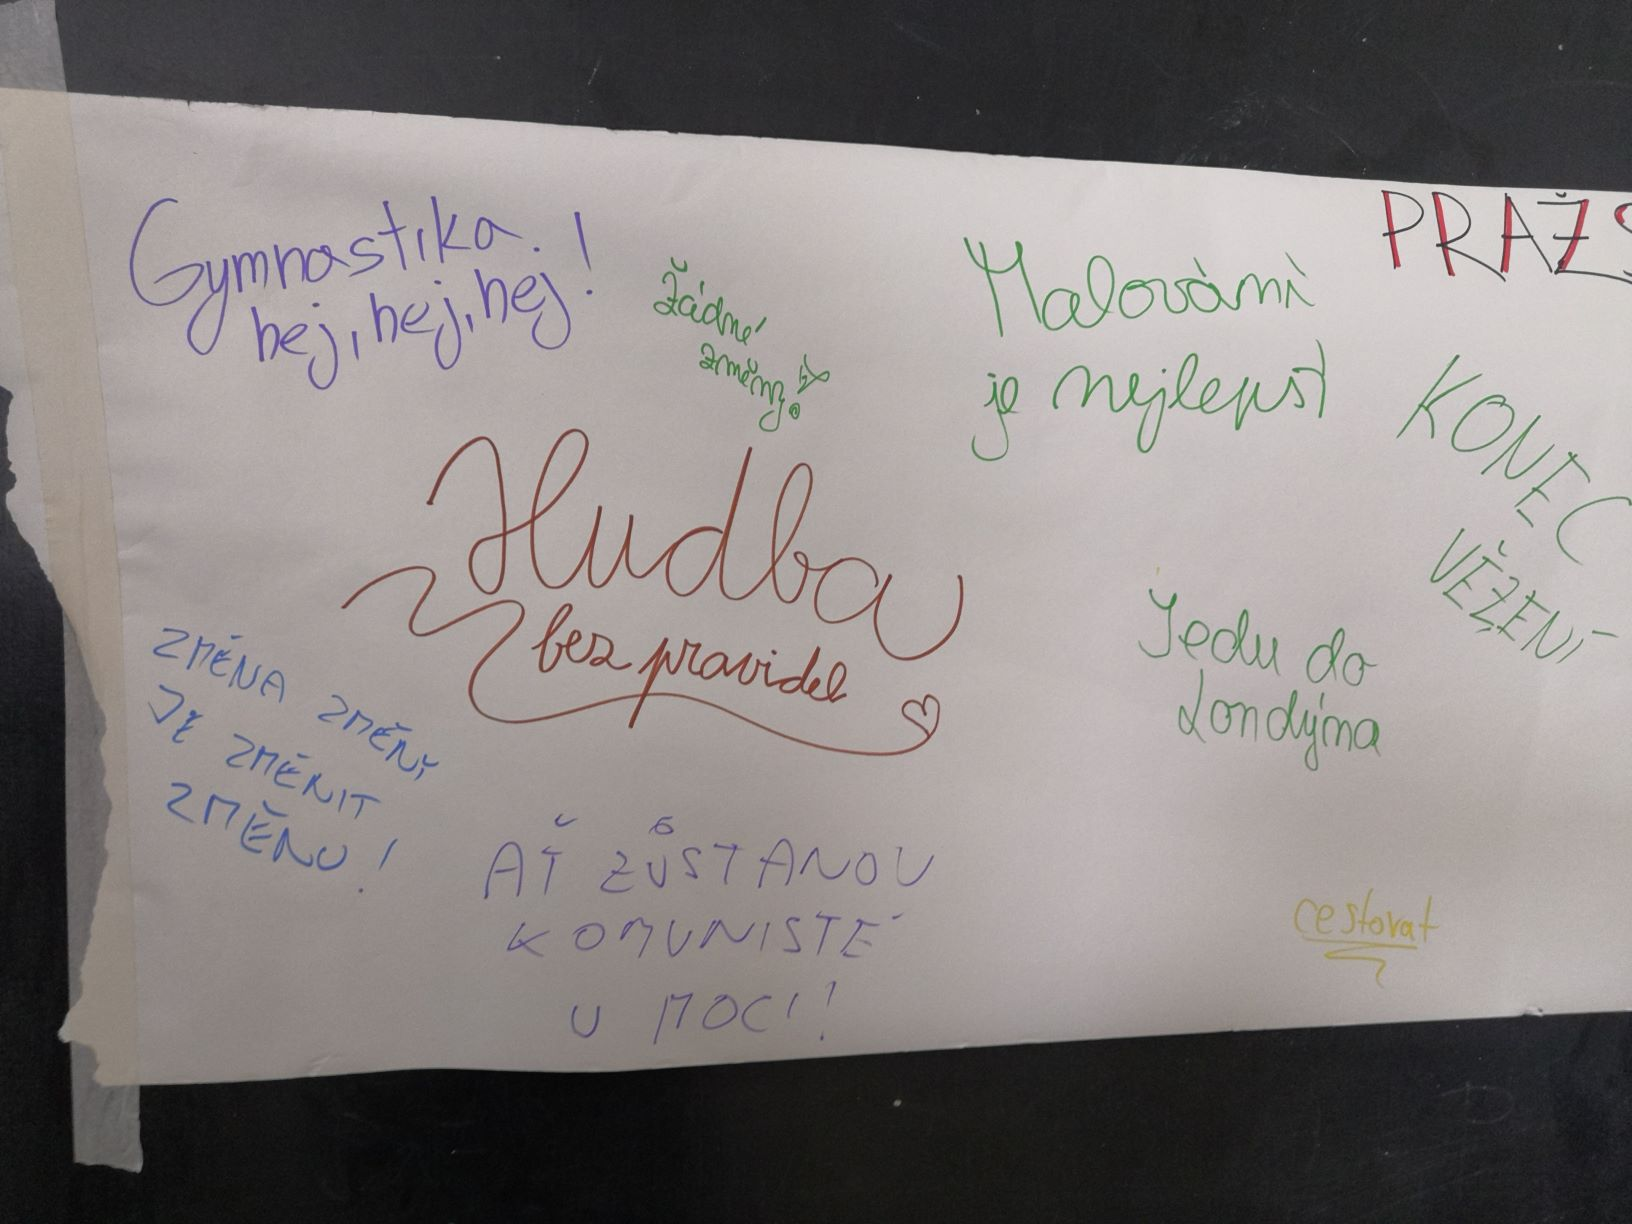 Gymnastika.
hej, hej, hej!
žádné
změny!
Malování
je nejlepší
PRAŽS
KONEC
VĚZENÍ
Hudba
bez pravidel
Jedu do
Londýna
ZMĚNA ZMĚNÍ
JE ZMĚNIT
ZMĚNU!
AŤ ZŮSTANOU
KOMUNISTÉ
U MOCI!
cestovat